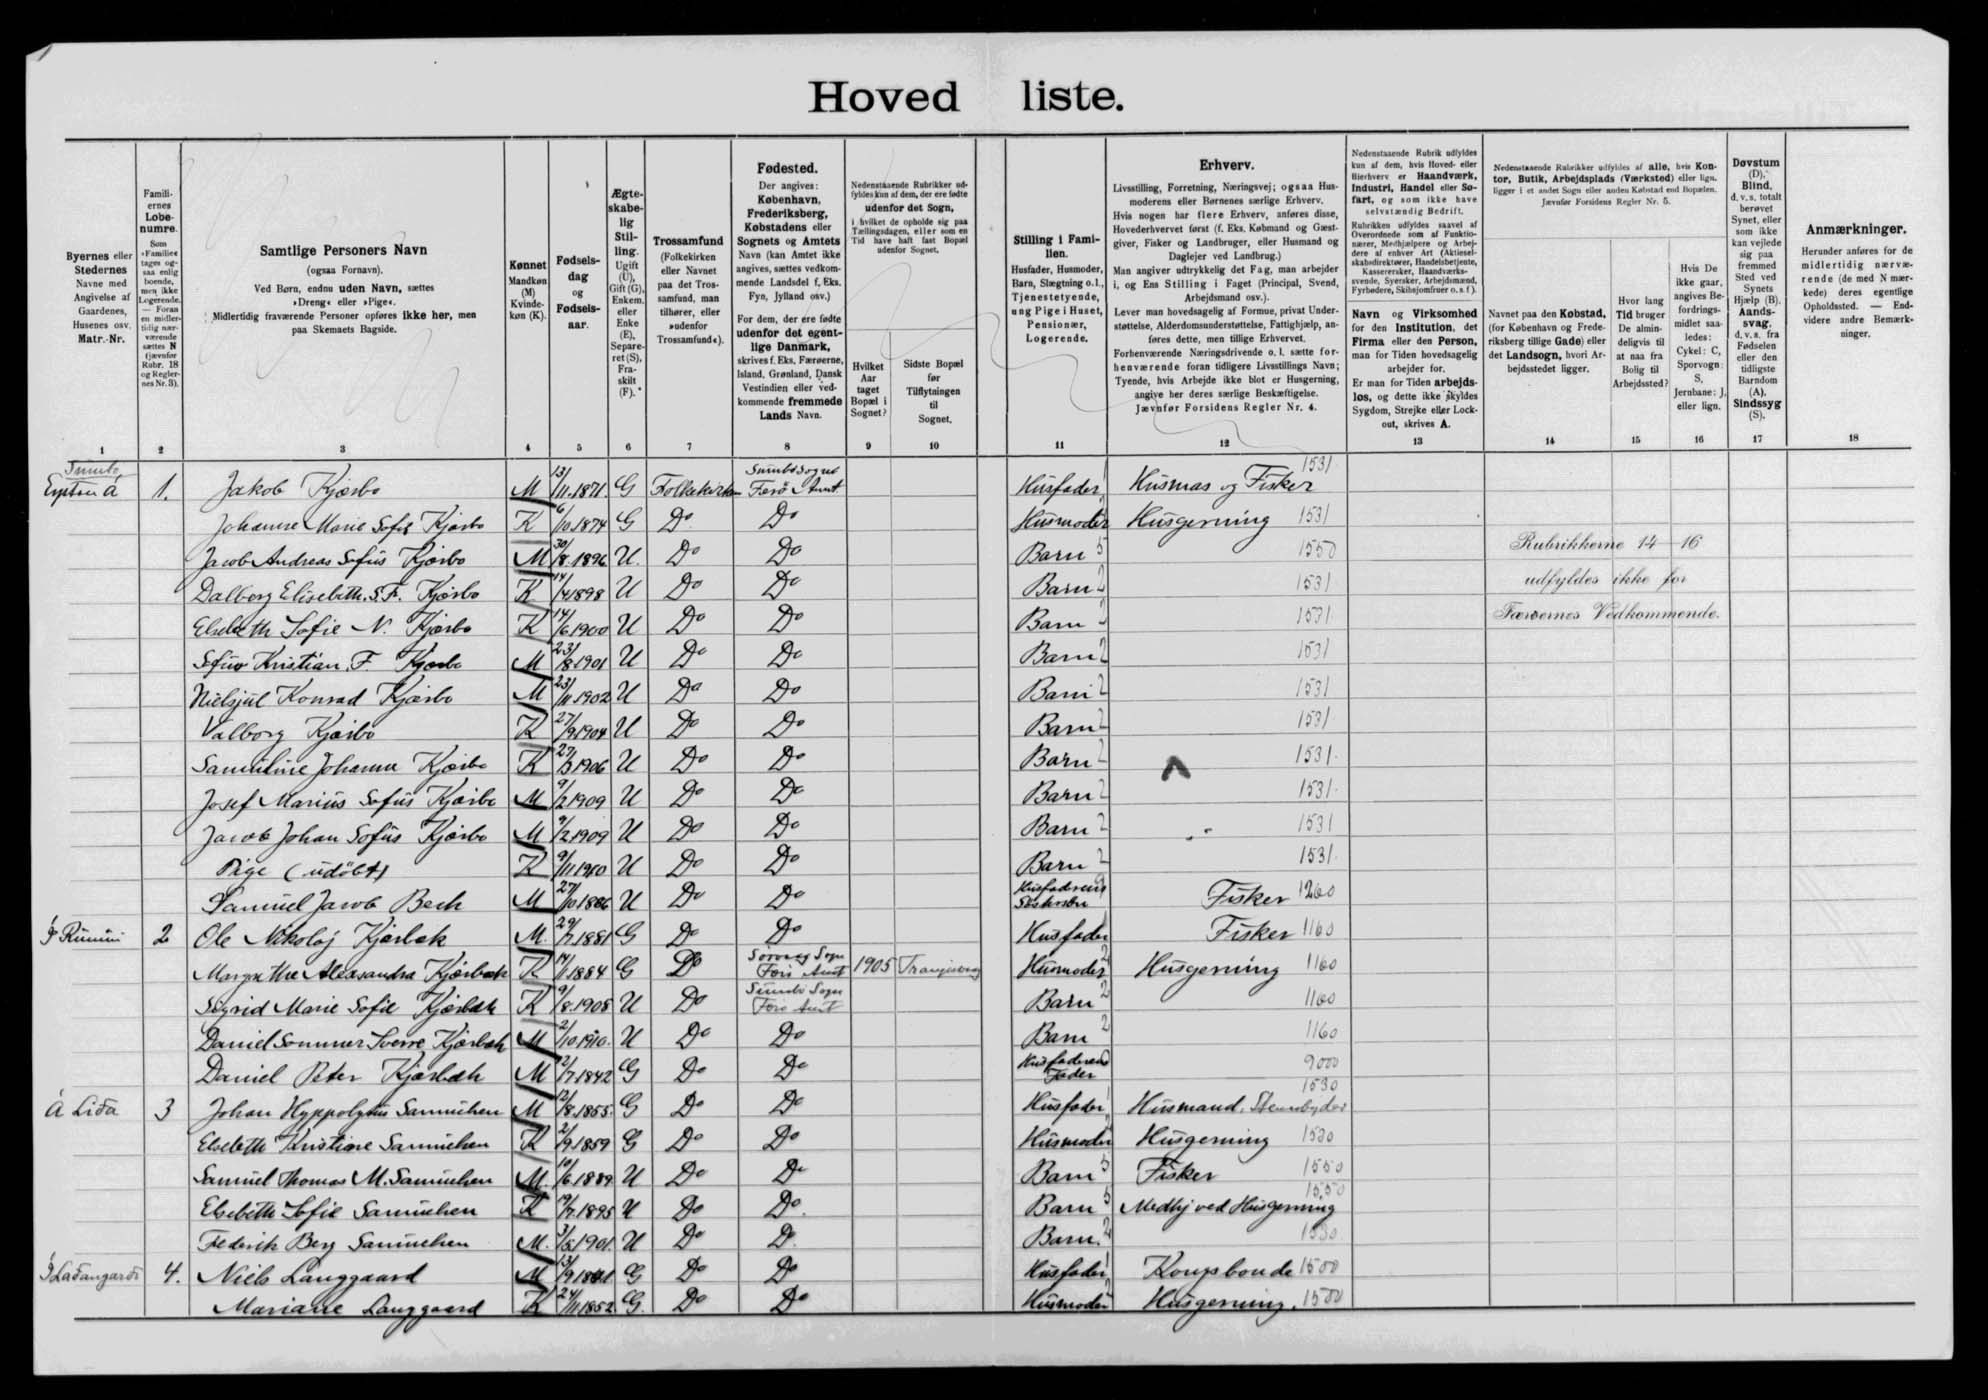 Hoved liste.
Byernes eller Stedernes Navne med Angivelse af Gaardenes, Husenes osv. Matr.-Nr.
Familiernes Løbenumre.
Som »Familie« tages ogsaa enlig boende, men ikke Logerende. — Foran en midlertidig nærværende sættes N (jævnfør Rubr. 18 og Reglernes Nr. 3).
Samtlige Personers Navn
(ogsaa Fornavn).
Ved Børn, endnu uden Navn, sættes
»Dreng« eller »Pige«.
Midlertidig fraværende Personer opføres ikke her, men
paa Skemaets Bagside.
Kønnet
Mandkøn (M)
Kvindekøn (K).
Fødselsdag og Fødselsaar.
Ægteskabelig Stilling.
Ugift (U), Gift (G), Enkem. eller Enke (E), Separeret (S), Fraskilt (F).
Trossamfund
(Folkekirken eller Navnet paa det Trossamfund, man tilhører, eller »udenfor Trossamfund«).
Fødested.
Der angives:
København,
Frederiksberg,
Købstadens eller
Sognets og Amtets
Navn (kan Amtet ikke
angives, sættes vedkommende Landsdel f. Eks.
Fyn, Jylland osv.)
For dem, der ere fødte
udenfor det egentlige Danmark,
skrives f. Eks. Færøerne,
Island, Grønland, Dansk
Vestindien eller vedkommende fremmede
Lands Navn.
Nedenstaaende Rubrikker udfyldes kun af dem, der ere fødte
udenfor det Sogn,
i hvilket de opholde sig paa
Tællingsdagen, eller som en
Tid have haft fast Bopæl
udenfor Sognet.
Hvilket Aar taget Bopæl i Sognet?
Sidste Bopæl før Tilflytningen til Sognet.
Stilling i Familien.
Husfader, Husmoder,
Barn, Slægtning o.l.,
Tjenestetyende,
ung Pige i Huset,
Pensionær,
Logerende.
Erhverv.
Livsstilling, Forretning, Næringsvej; ogsaa Husmoderens eller Børnenes særlige Erhverv.
Hvis nogen har flere Erhverv, anføres disse,
Hovederhvervet først (f. Eks. Købmand og Gæstgiver, Fisker og Landbruger, eller Husmand og
Daglejer ved Landbrug.)
Man angiver udtrykkelig det Fag, man arbejder
i, og Ens Stilling i Faget (Principal, Svend,
Arbejdsmand osv.).
Lever man hovedsagelig af Formue, privat Understøttelse, Alderdomsunderstøttelse, Fattighjælp, anføres dette, men tillige Erhvervet.
Forhenværende Næringsdrivende o. l. sætte forhenværende foran tidligere Livsstillings Navn;
Tyende, hvis Arbejde ikke blot er Husgerning,
angive her deres særlige Beskæftigelse.
Jævnfør Forsidens Regler Nr. 4.
Nedenstaaende Rubrik udfyldes
kun af dem, hvis Hoved- eller
Bierhverv er Haandværk,
Industri, Handel eller Søfart, og som ikke have
selvstændig Bedrift.
Rubrikken udfyldes saavel af
Overordnede som af Funktionærer, Medhjælpere og Arbejdere af enhver Art (Aktieselskabsdirektører, Handelsbetjente,
Kasserersker, Haandværkssvende, Syersker, Arbejdsmænd,
Fyrbødere, Skibsjomfruer o. s. f).
Navn og Virksomhed
for den Institution, det
Firma eller den Person,
man for Tiden hovedsagelig
arbejder for.
Er man for Tiden arbejdsløs, og dette ikke skyldes
Sygdom, Strejke eller Lockout, skrives A.
Nedenstaaende Rubrikker udfyldes af alle, hvis Kontor, Butik, Arbejdsplads (Værksted) eller lign.
ligger i et andet Sogn eller anden Købstad end Bopælen.
Jævnfør Forsidens Regler Nr. 5.
Navnet paa den Købstad,
(for København og Frederiksberg tillige Gade) eller
det Landsogn, hvori Arbejdsstedet ligger.
Hvor lang Tid bruger De almindeligvis til at naa fra Bolig til Arbejdssted?
Hvis De ikke gaar, angives Befordringsmidlet saaledes: Cykel: C, Sporvogn: S, Jernbane: J, eller lign.
Døvstum (D), Blind, d. v. s. totalt berøvet Synet, eller som ikke kan vejlede sig paa fremmed Sted ved Synets Hjælp (B). Aandssvag, d. v. s. fra Fødselen eller den tidligste Barndom (A), Sindssyg (S).
Anmærkninger.
Herunder anføres for de
midlertidig nærværende (de med N mærkede) deres egentlige
Opholdssted. — Endvidere andre Bemærkninger.
1 2 3 4 5 6 7 8 9 10 11 12 13 14 15 16 17 18
Sumbø
1. Jakob Kjærbo M 13/11.1871. G Folkekirken Sumbø Sogn Færø Amt. Husfader 1 Husmas og Fisker 1531
Johanne Marie Sofie Kjærbo K 6/10.1874 G Do Do Husmoder Husgerning 1531
Jacob Andreas Sofus Kjærbo M 30/8.1896 U. Do Do Barn 5 1550
Dalborg Elisebeth. S.F. Kjærbo K 14/4 1898 U Do Do Barn 2 1531
Elsebeth Sofie N. Kjærbo K 14/6.1900 U Do Do Barn 2 1531
Sofus Kristian. F. Kjærbo M 23/8.1901 U Do Do Barn 2 1531
Nielsjul Konrad Kjærbo M 23/11.1902 U Do Do Barn 2 1531
Valborg Kjærbo K 27/9.1904 U Do Do Barn 2 1531
Samuline Johanne Kjærbo K 27/3 1906 U Do Do Barn 2 1531
Josef Marius Sofus Kjærbo M 9/2 1909 U Do Do Barn 2 1531
Jacob Johan Sofus Kjærbo M 9/2 1909 U Do Do Barn 2 1531
Pige (udöbt) K 9/11 1910 U Do Do Barn 2 1531
Samuel Jacob Bech M 27/10 1886 U Do Do Husfaderens Søstersøn 9 Fisker 1260
Rubrikkerne 14-16
udfyldes ikke for
Færøernes Vedkommende.
Í Rimini 2 Ole Nikolaj Kjærbæk M. 29/7.1881 G Do Do Husfader Fisker 1160
Margrethe Alexsandra Kjærbæk K 14/11.1884 G Do Sørvaag Sogn Færø Amt 1905 Trangisvaag Husmoder 2 Husgerning 1160
Sigrid Marie Sofie Kjærbæk K 9/8.1908 U Do Sumbø Sogn Færø Amt Barn 2 1160
Daniel Sommer Sverre Kjærbæk M 2/10.1910. U Do Do Barn 2 1160
Daniel Peter Kjærbæk M 12/7.1842 G Do Do Husfaderens Fader 9000
Á Liða 3 Johan Hyppolytus Samuelsen M 12/8.1855. G Do Do Husfader 1 Husmand. 1530
Elsebeth Kristiane Samuelsen K 2/9.1859 G Do Do Husmoder Husgerning 1530
Samuel Thomas M. Samuelsen M. 10/6.1889 U Do Do Barn 5 Fisker 1550
Elsebeth Sofie Samuelsen K 19/7.1895 U Do Do. Barn 5 Medhj ved Husgerning 1550
Federik Berg Samuelsen M. 3/5.1901. U Do Do Barn. 2 1530
Í Laðangarði 4. Niels Langgaard M 13/9 1841 G Do Do Husfader 1 Kongsbonde 1500
Mariane Langgaard K 24/11 1852 G. Do Do Husmoder 2 Husgerning. 1500